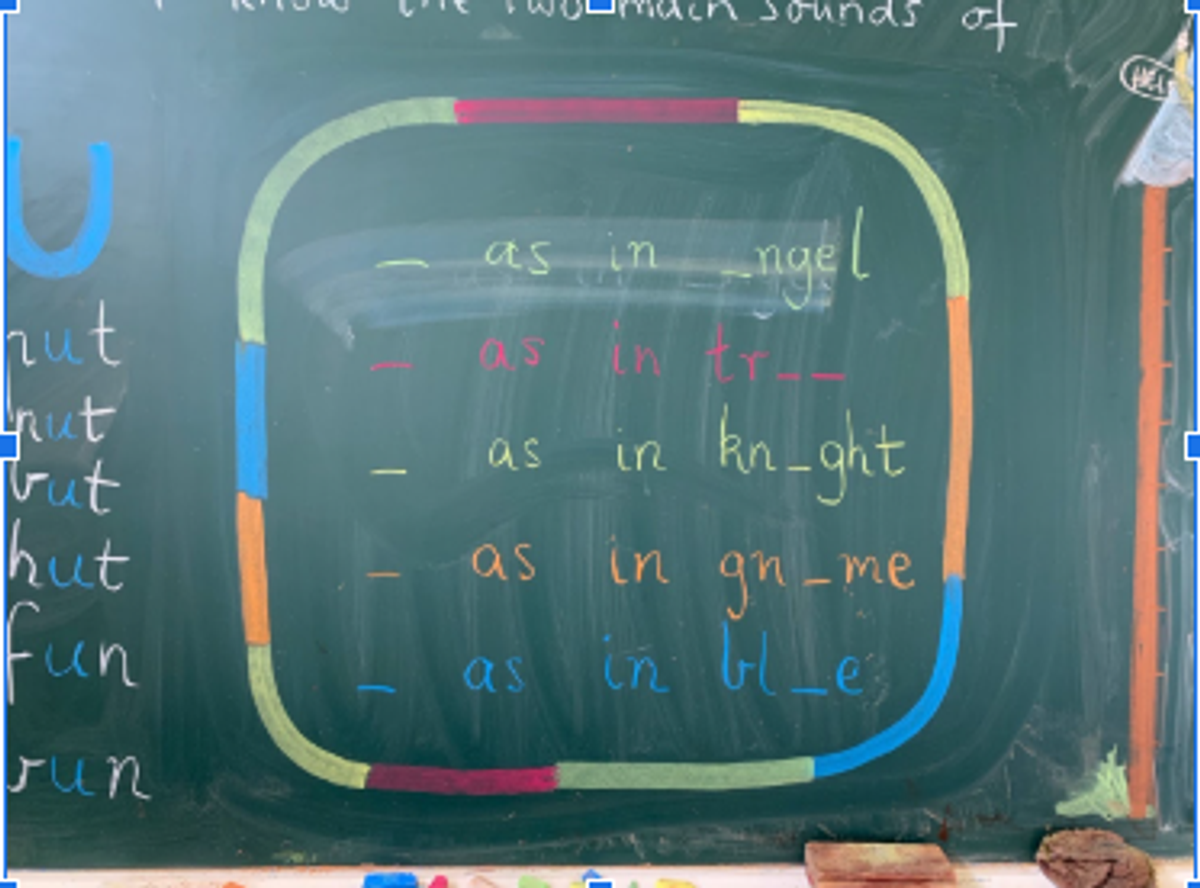 know the two main sounds of
U
nut
but
hut
fun
_ as in _ngel
_ as in tr_ _
_ as in kn_ght
_ as in gn_me
_ as in bl_e